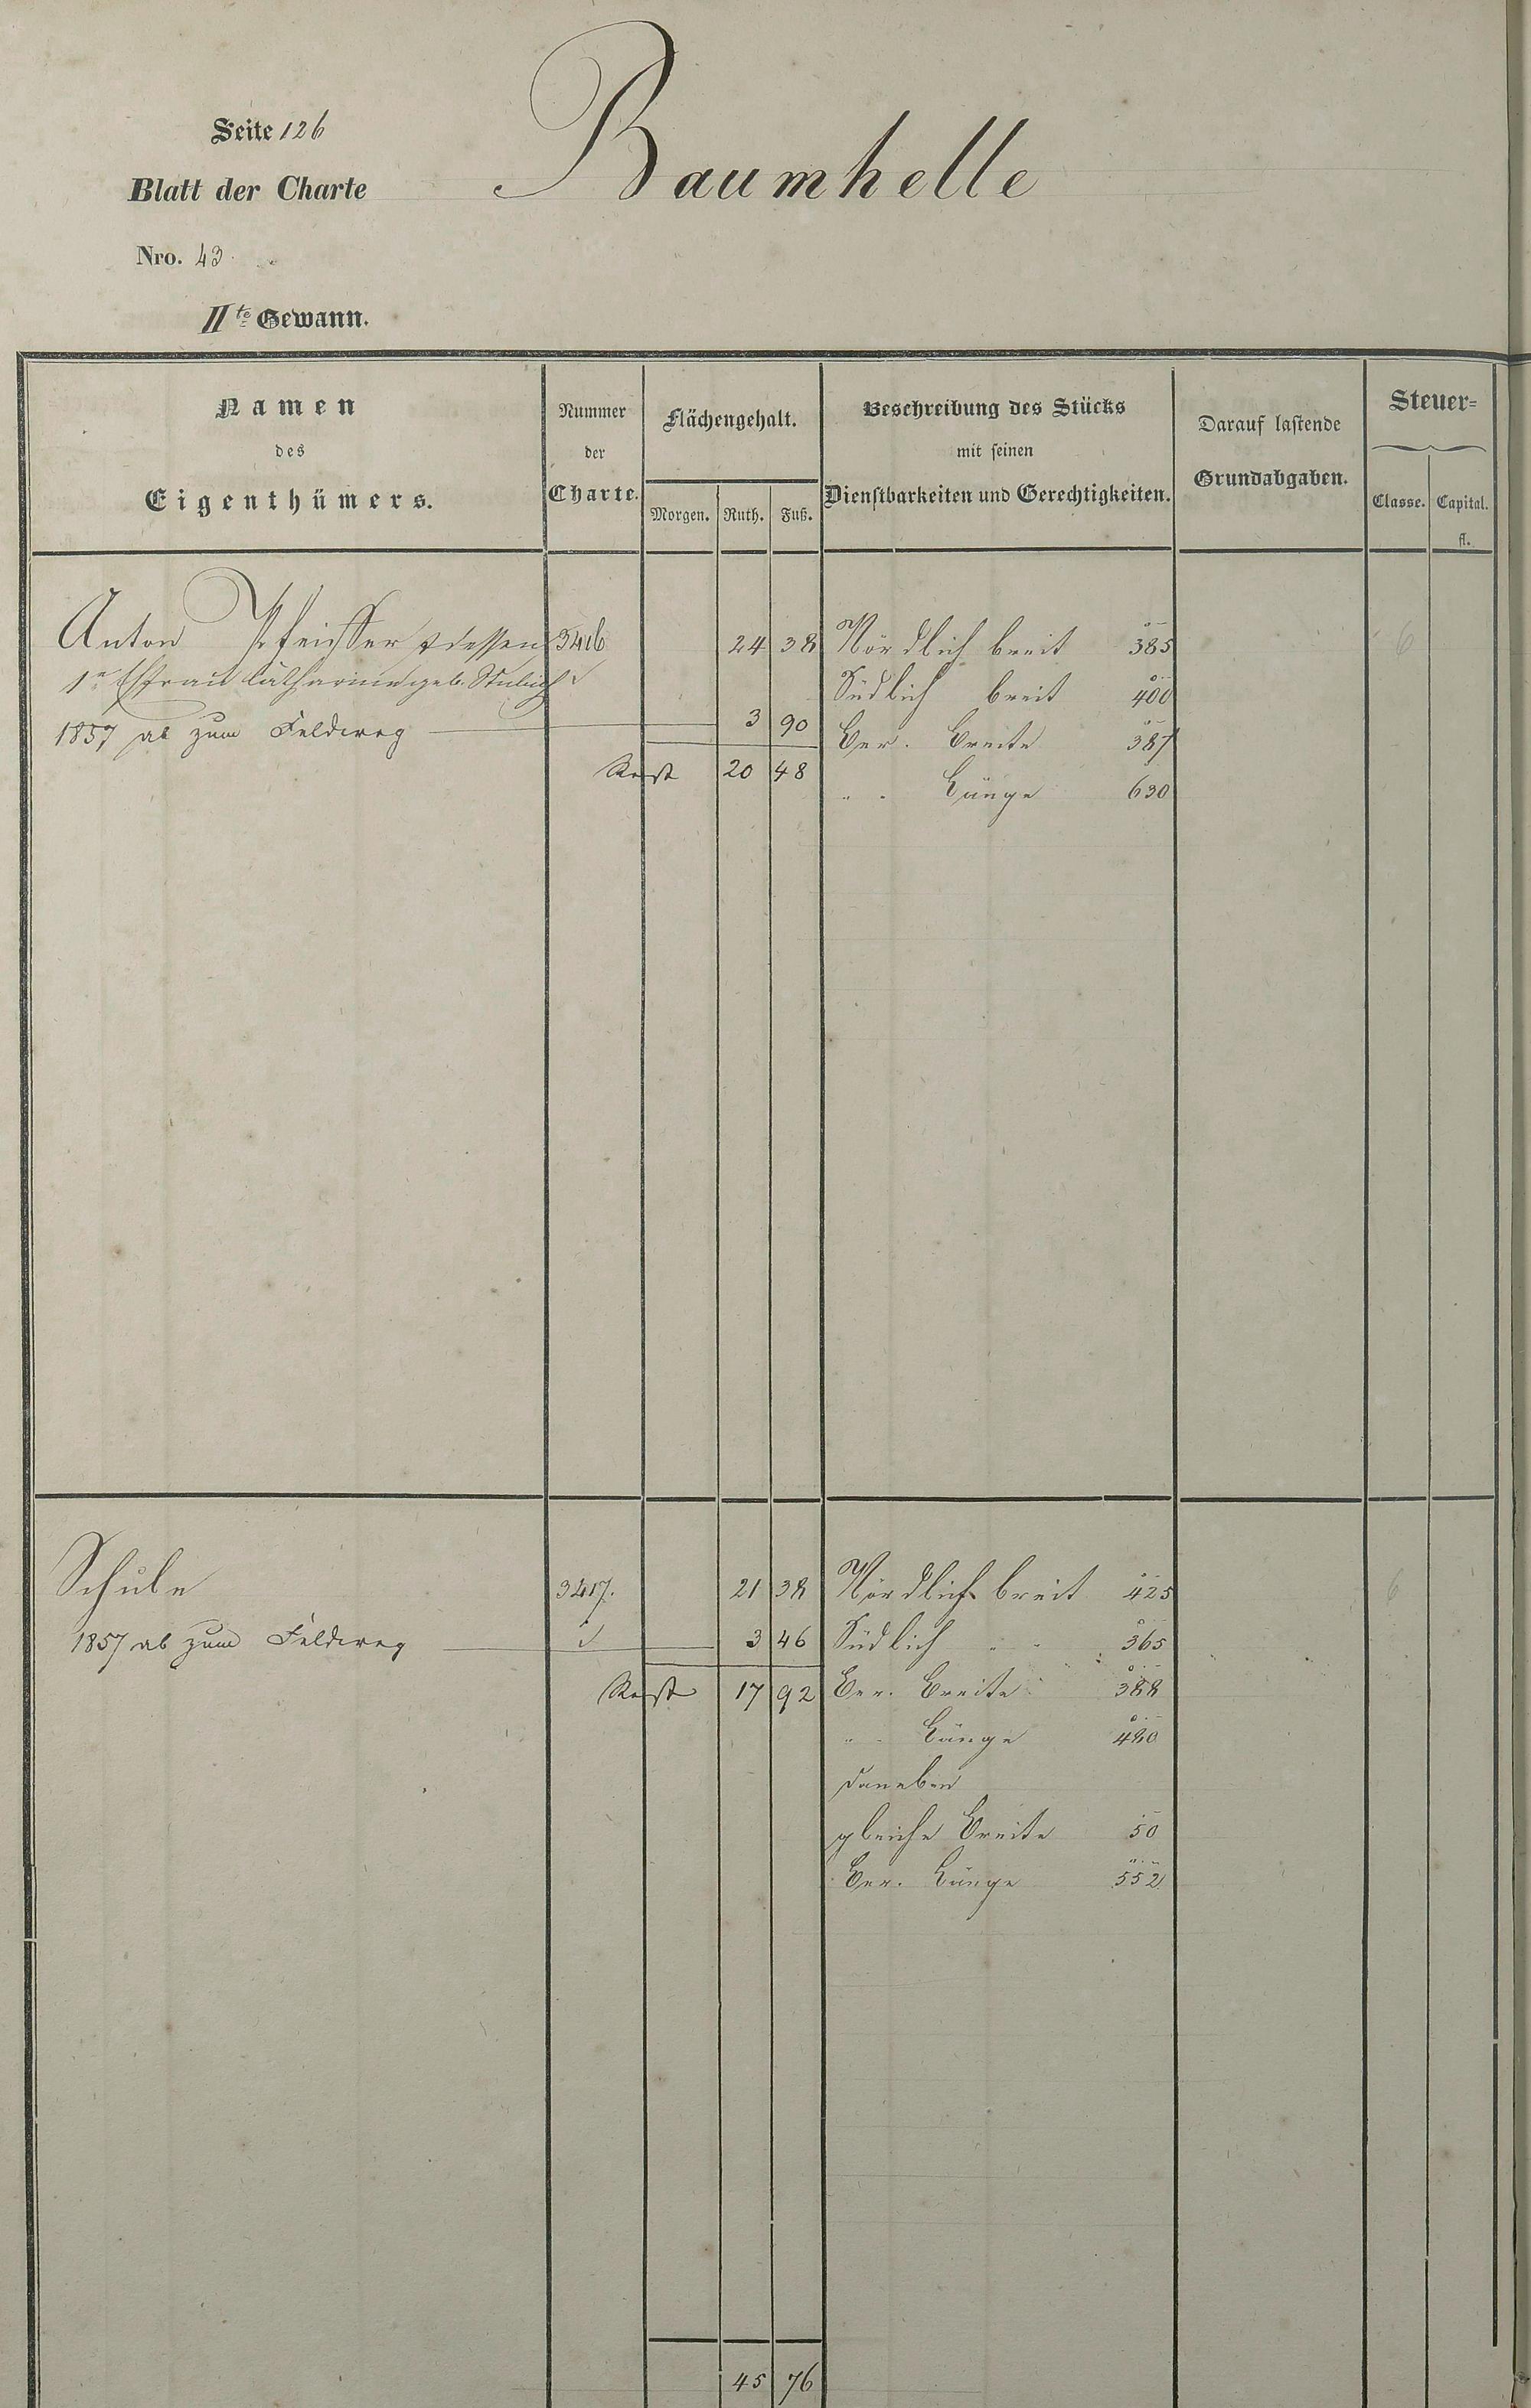 Seite 126
Baumhelle
Blatt der Charte
Nro. 43.
IIte Gewann.
Namen
des
Eigenthümers.
Nummer
der
Charte.
Flächengehalt.
Morgen. Ruth. Fuß.
Beschreibung des Stücks
mit seinen
Dienstbarkeiten und Gerechtigkeiten.
Darauf lastende
Grundabgaben.
Steuer=
Classe. Capital.
fl.
Anton Pfeiffer & dessen 3416 24 38 Nördlich breit 385 6
1e Ehfrau Catharine geb. Südlich breit 400
1857 ab zum Feldweg 3 90 Ber. Breite 387
Rest 20 48
" " Länge 630
Schule 3417. 21 38 Nördlich breit 425 6
1857 ab zum Feldweg 3 46 Südlich " " 365
Rest 17 92 Ber. Breite 388
" " Länge 480
daneben
gleiche Breite 50
Ber. Länge 552
45 76